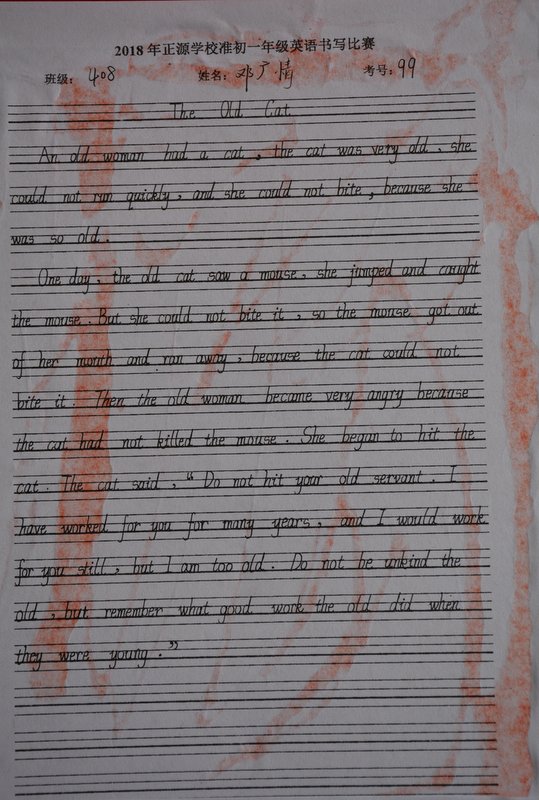 2018年正源学校准初一年级英语书写比赛
班级: 408 姓名: 邓广情 考号: 99
The Old Cat
An old woman had a cat, the cat was very old, she
could not run quickly, and she could not bite, because she
was so old.
One day, the old cat saw a mouse, she jumped and caught
the mouse. But she could not bite it, so the mouse got out
of her mouth and ran away, because the cat could not
bite it. Then the old woman became very angry because
the cat had not killed the mouse. She began to hit the
cat. The cat said, “Do not hit your old servant. I
have worked for you for many years, and I would work
for you still, but I am too old. Do not be unkind the
old, but remember what good work the old did when
they were young.”